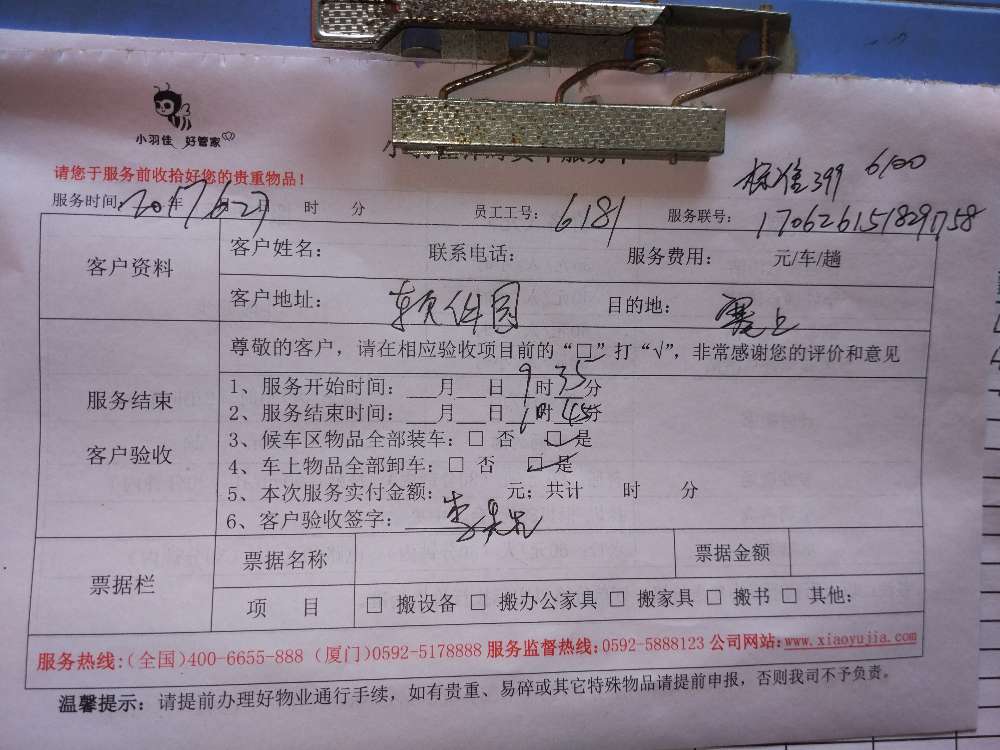 小羽佳 好管家
标准399 6100
请您于服务前收拾好您的贵重物品！
服务时间：2017年6月27日 时 分 员工工号：6181 服务联号：
客户资料 客户姓名： 联系电话： 服务费用： 元/车/趟
客户地址：软件园 目的地：
服务结束 客户验收
尊敬的客户，请在相应验收项目前的“□”打“√”，非常感谢您的评价和意见
1、服务开始时间：___月___日 9时35分
2、服务结束时间：___月___日 时45分
3、候车区物品全部装车：□ 否 □ 是
4、车上物品全部卸车：□ 否 □ 是
5、本次服务实付金额： 元；共计 时 分
6、客户验收签字：
票据栏 票据名称 票据金额
项 目 □ 搬设备 □ 搬办公家具 □ 搬家具 □ 搬书 □ 其他：
服务热线：（全国）400-6655-888（厦门）0592-5178888 服务监督热线：0592-5888123 公司网站：www.xiaoyujia.com
温馨提示：请提前办理好物业通行手续，如有贵重、易碎或其它特殊物品请提前申报，否则我司不予负责。